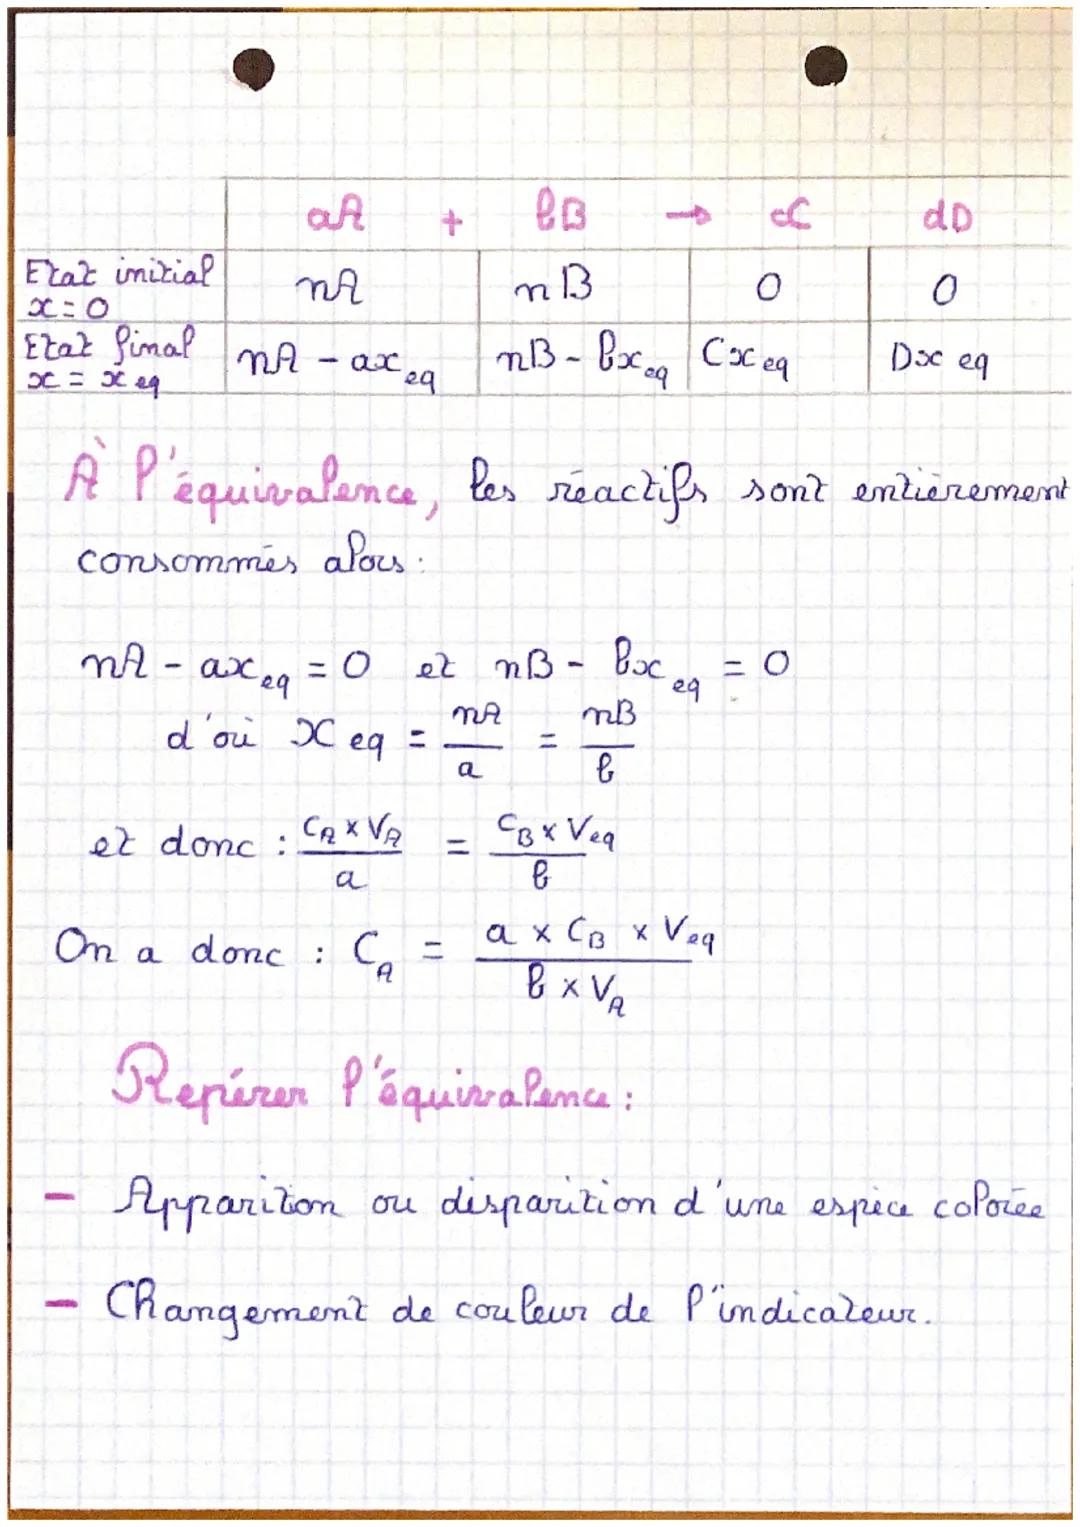 aA + bB → cC dD
Etat initial nA nB 0 0
x = 0
Etat final nA - ax eq nB - bx eq Cx eq Dx eq
x = x eq
À l'équivalence, les réactifs sont entièrement
consommés alors :
nA - ax eq = 0 et nB - bx eq = 0
d'où x eq = nA / a = nB / b
et donc : CA x VA / a = CB x Veq / b
On a donc : CA = a x CB x Veq / b x VA
Repérer l'équivalence :
- Apparition ou disparition d'une espèce colorée
- Changement de couleur de l'indicateur.